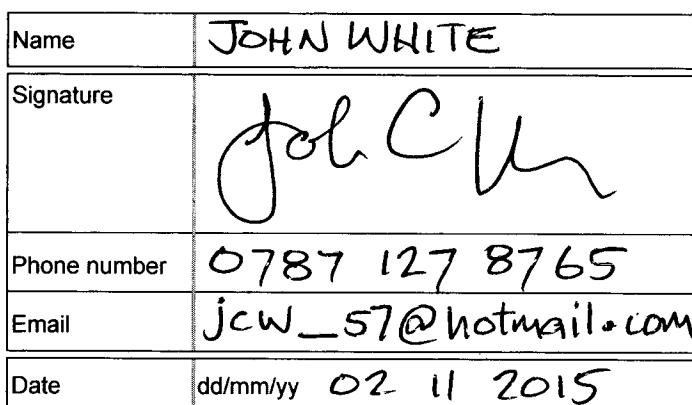 Name JOHN WHITE
Signature Joh C
Phone number 0787 127 8765
Email jcw_57@hotmail.com
Date dd/mm/yy 02 11 2015